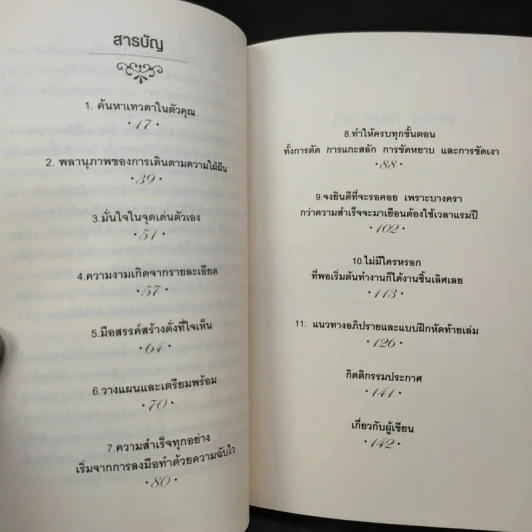 สารบัญ
1. ค้นหาเทวดาในตัวคุณ
·17·
2. พลานุภาพของการเดินตามความใฝ่ฝัน
·39·
3.มั่นใจในจุดเด่นตัวเอง
·51·
4.ความงามเกิดจากรายละเอียด
·57·
5.มือสรรค์สร้างดั่งที่ใจเห็น
·64·
6.วางแผนและเตรียมพร้อม
·70·
7.ความสำเร็จทุกอย่าง
เริ่มจากการลงมือทำด้วยความฉับไว
·80·
8.ทำให้ครบทุกขั้นตอน
ทั้งการตัด การแกะสลัก การขัดหยาบ และการขัดเงา
·88·
9.จงยินดีที่จะรอคอย เพราะบางครา
กว่าความสำเร็จจะมาเยือนต้องใช้เวลาแรมปี
·102·
10.ไม่มีใครหรอก
ที่พอเริ่มต้นทำงานก็ได้งานชิ้นเลิศเลย
·113·
11. แนวทางอภิปรายและแบบฝึกหัดท้ายเล่ม
·126·
กิตติกรรมประกาศ
·141·
เกี่ยวกับผู้เขียน
·142·